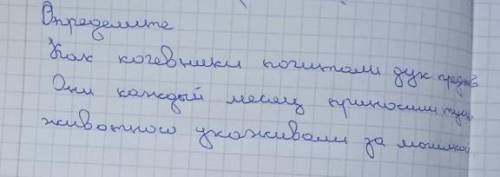 Определите
Как кочевники почитали дух предков
Они каждый месяц приносили туши
животного ухаживали за могилой